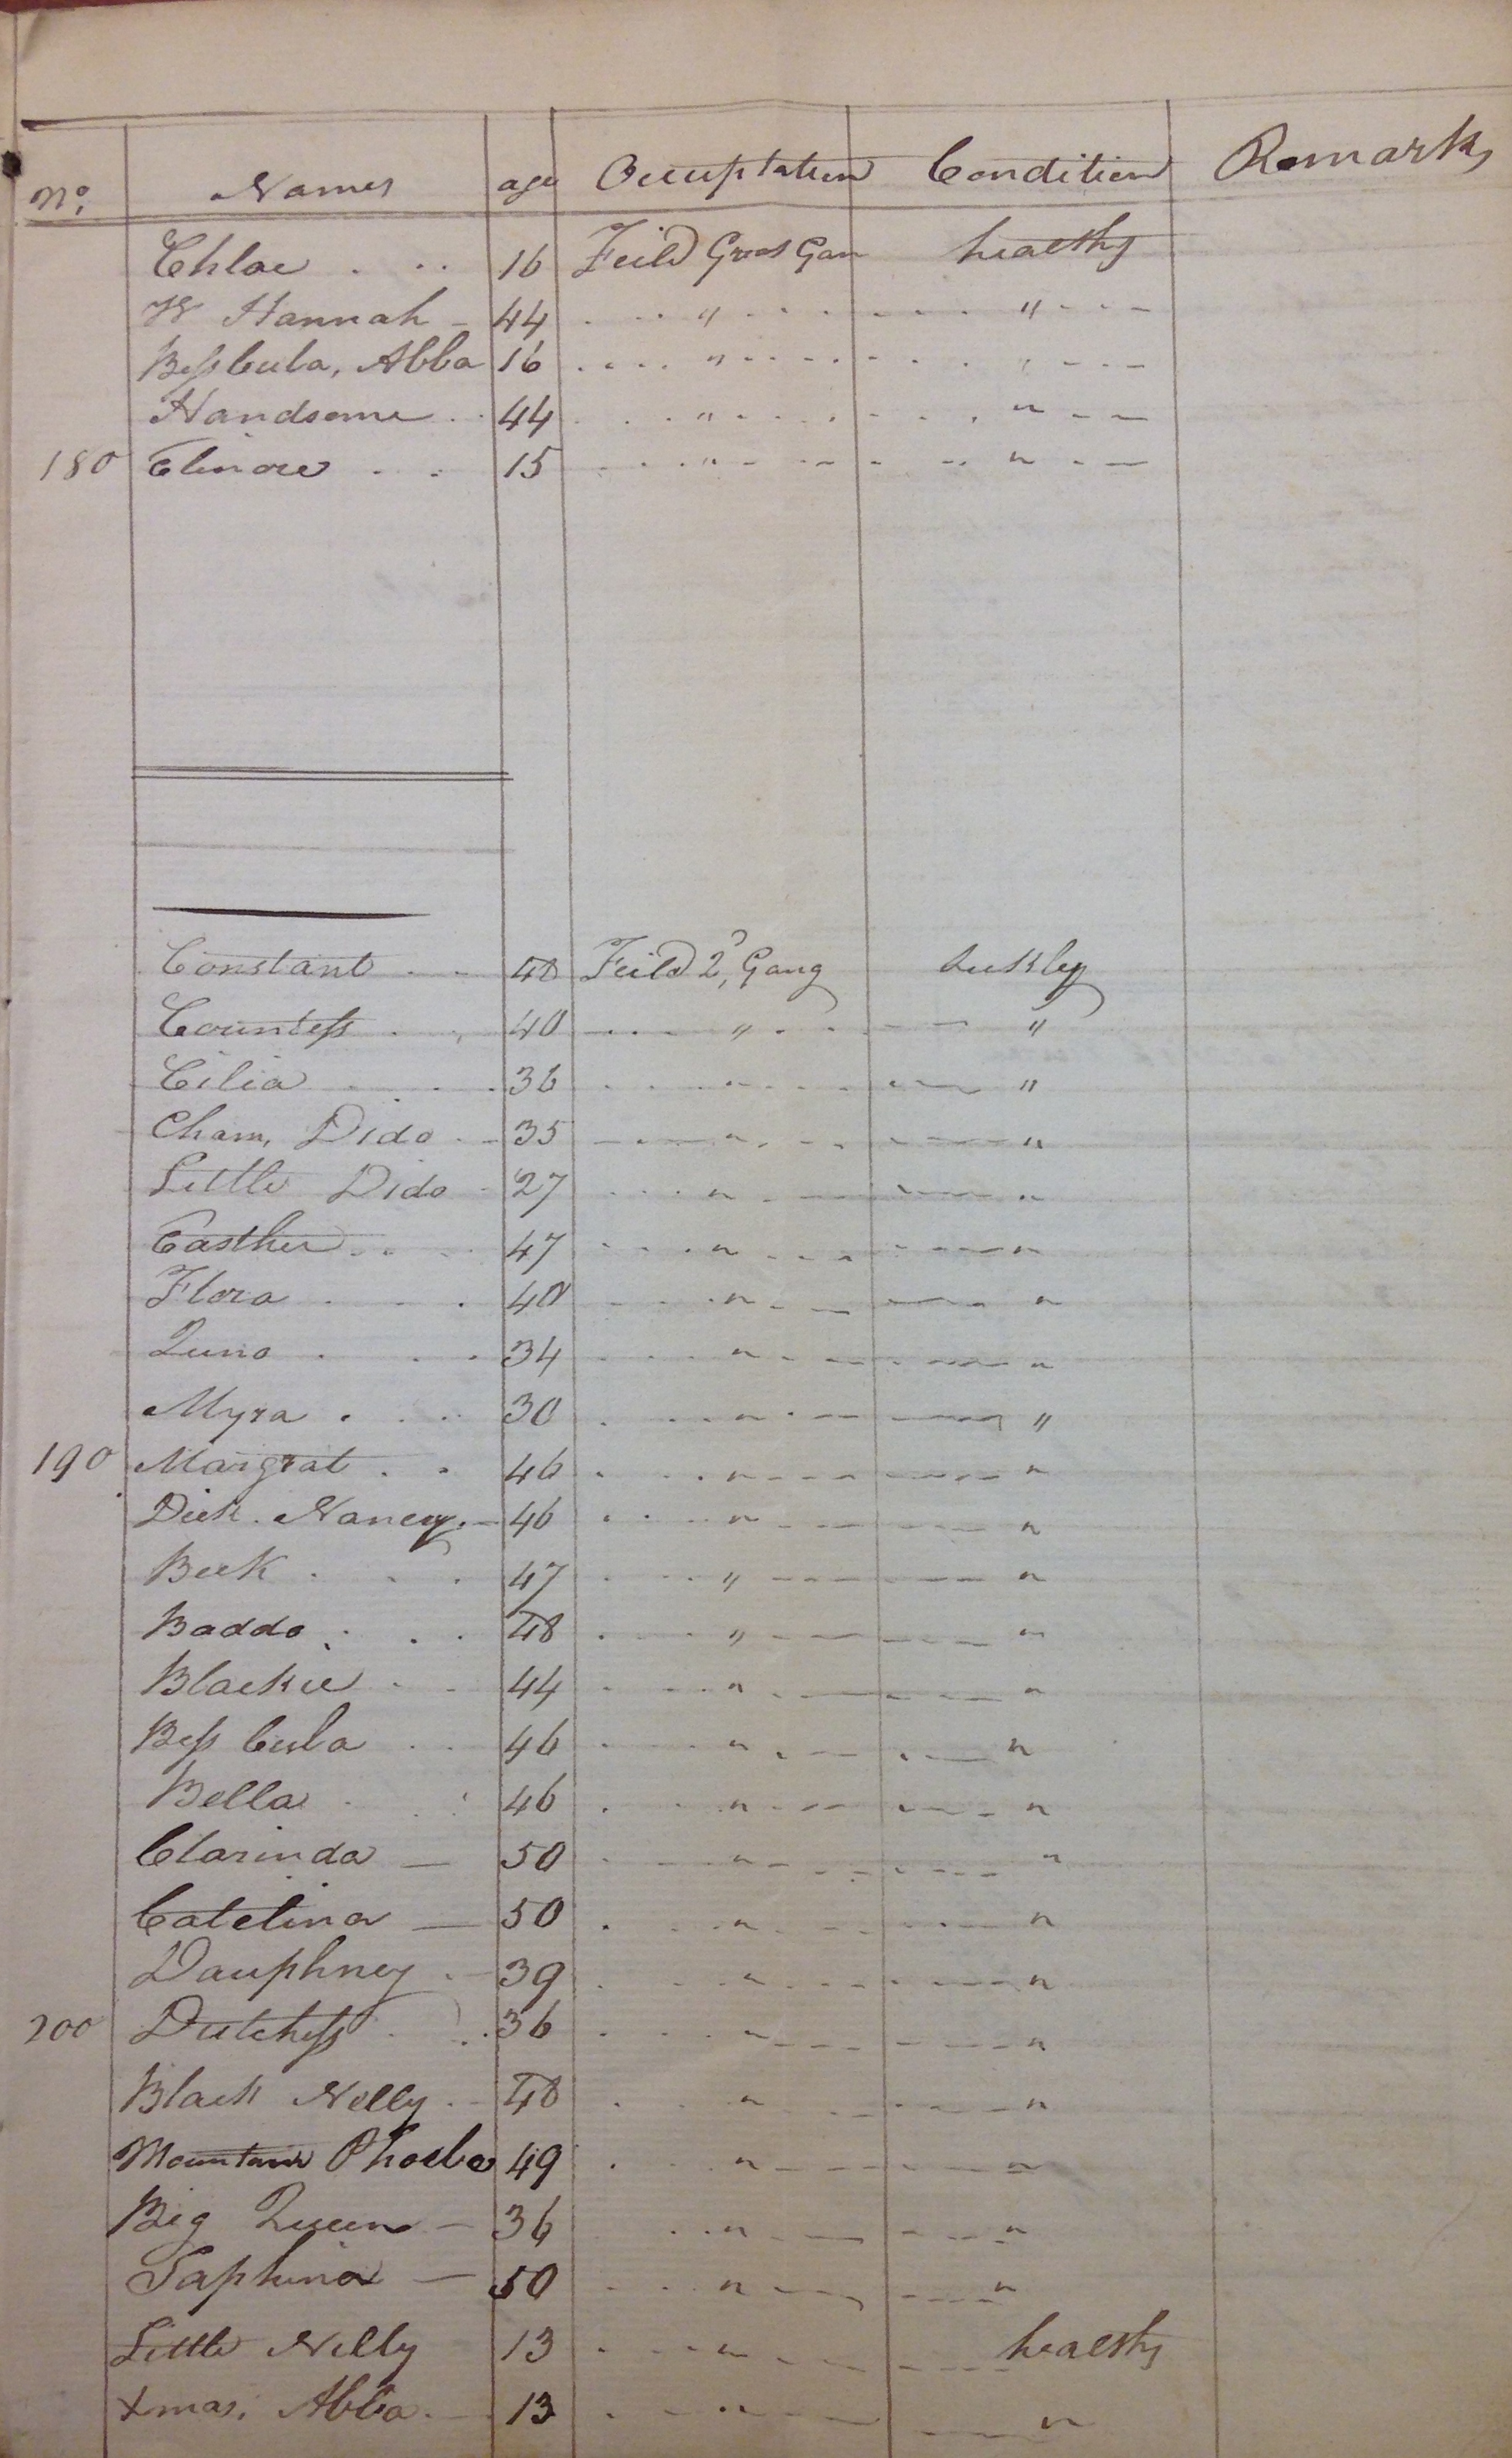 No. Names age Occuptation Condition Remarks
Chloe . . . 16 Feild Great Gan healthy
W Hannah - 44 . . . " . . . . . . . " - - -
Bess Cuba, Abba 16 . . . . " - - - - - . . " - - -
Handsome . . 44 . . . " - - - . - - . . " - -
180 Elinore . . . 15 - . . . " - - - - - . . " - -
Constant . . 48 Feild 2d, Gang Suckley
Countess . . 40 - . . . " . . . - - "
Cilia . . . 36 . . . . " . . . . - - "
Cham, Dido . - 35 - . - - " . - . - - - "
Little Dido - 27 . . . . " - - - . - - "
Easther . . . 47 . . . " - - - . - - "
Flora . . . 40 - . . . " - - - - - . "
Juno . . . 34 . . . . " - - - . - - "
Myra . . . 30 . . . . " . - - - - "
190 Margrat . . 46 . . . . " - - - - - - "
Dick. Nancy. - 46 . . . . " - - - - - "
Beck . . . 47 . . . " - - - - - - "
Baddo . . . 48 . . . - " - - - - - "
Blackie . . 44 . . . . " . - - - - - "
Bess Cuba . . 46 . . . - " . - - . - - "
Bella . . 46 . . . " - - - - - . "
Clarinda - 50 . . - . " - - - . - - "
Catelina - 50 . . . . " - - - - . - "
Dauphney . - 39 . . . . " - - - - - - "
200 Dutchess . . 36 . . . . " - - - - - - "
Black Nelly . - 48 . . . " - - - - - - "
Mountain Phoebe 49 . . . " - - - - - - "
Big Queen - 36 . . " - - - - - - "
Saphina - 50 . . . " - - - - - - "
Little Nelly 13 . . - - " - - - - healthy
Xmas. Abba . - 13 . . - . " - - - - - "